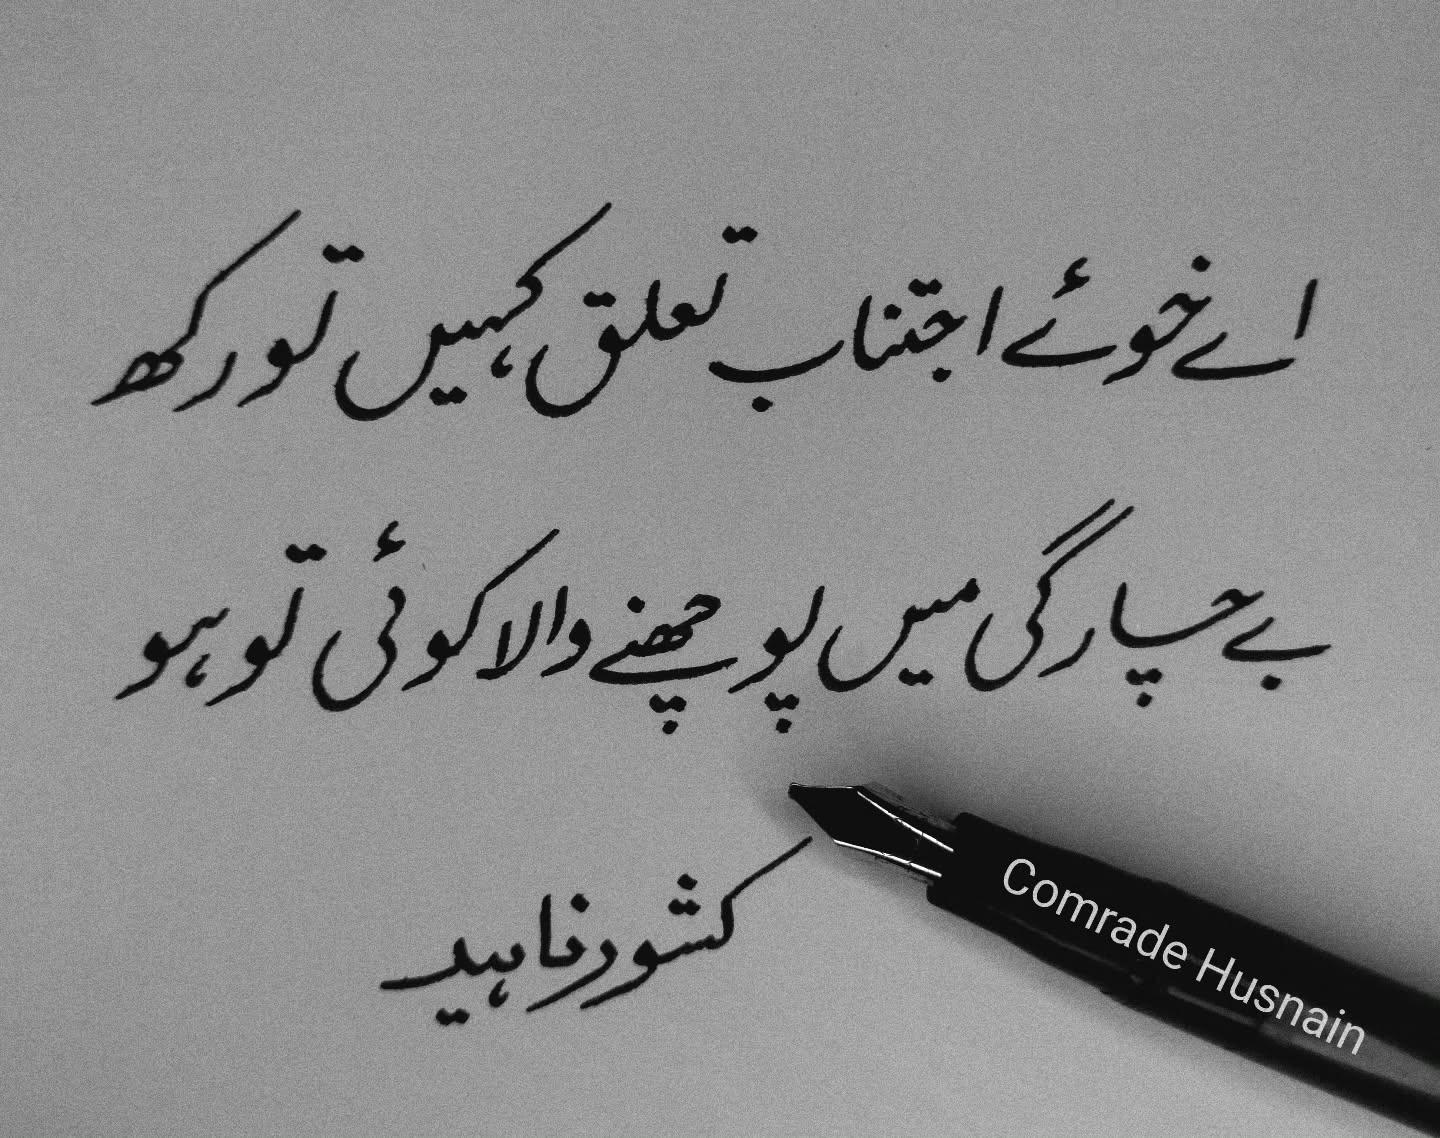 اے خوئے اجتناب تعلق کہیں تو رکھ
بے چارگی میں پوچھنے والا کوئی تو ہو
کشور ناہید
Comrade Husnain